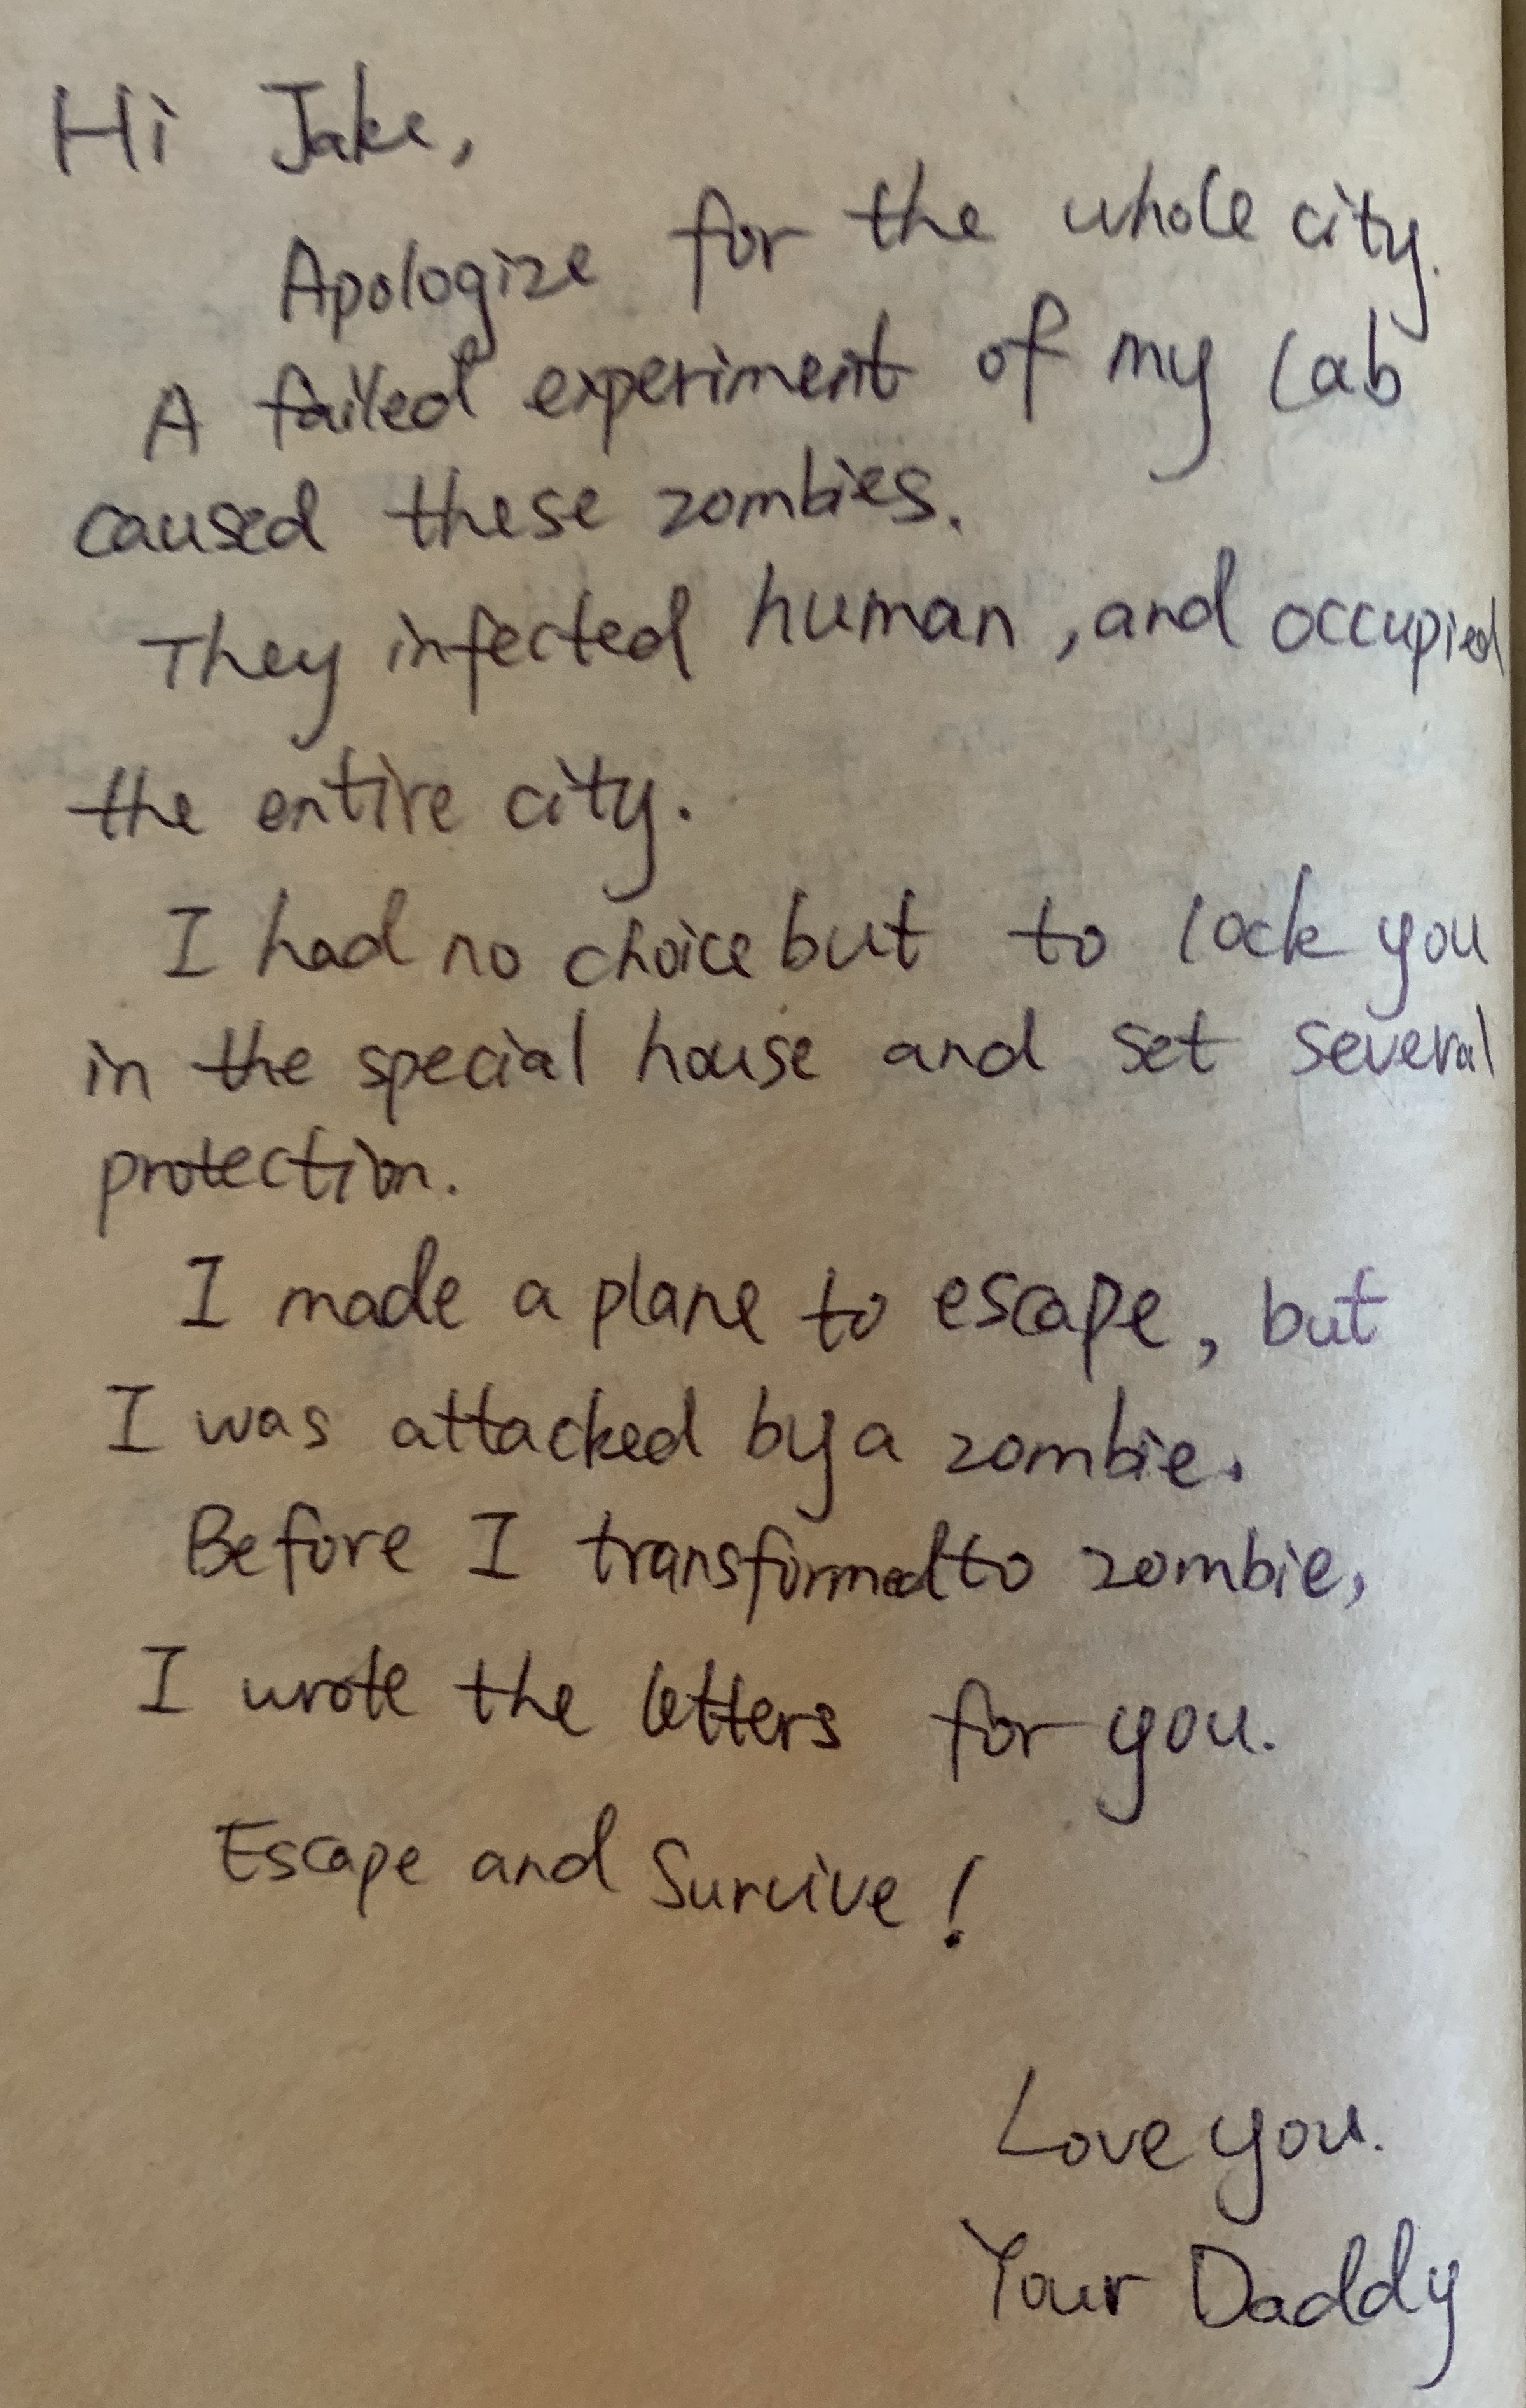 Hi Jake,
Apologize for the whole city.
A failed experiment of my lab
caused these zombies.
They infected human, and occupied
the entire city.
I had no choice but to lock you
in the special house and set several
protection.
I made a plane to escape, but
I was attacked by a zombie.
Before I transformed to zombie,
I wrote the letters for you.
Escape and Survive!
Love you.
Your Daddy